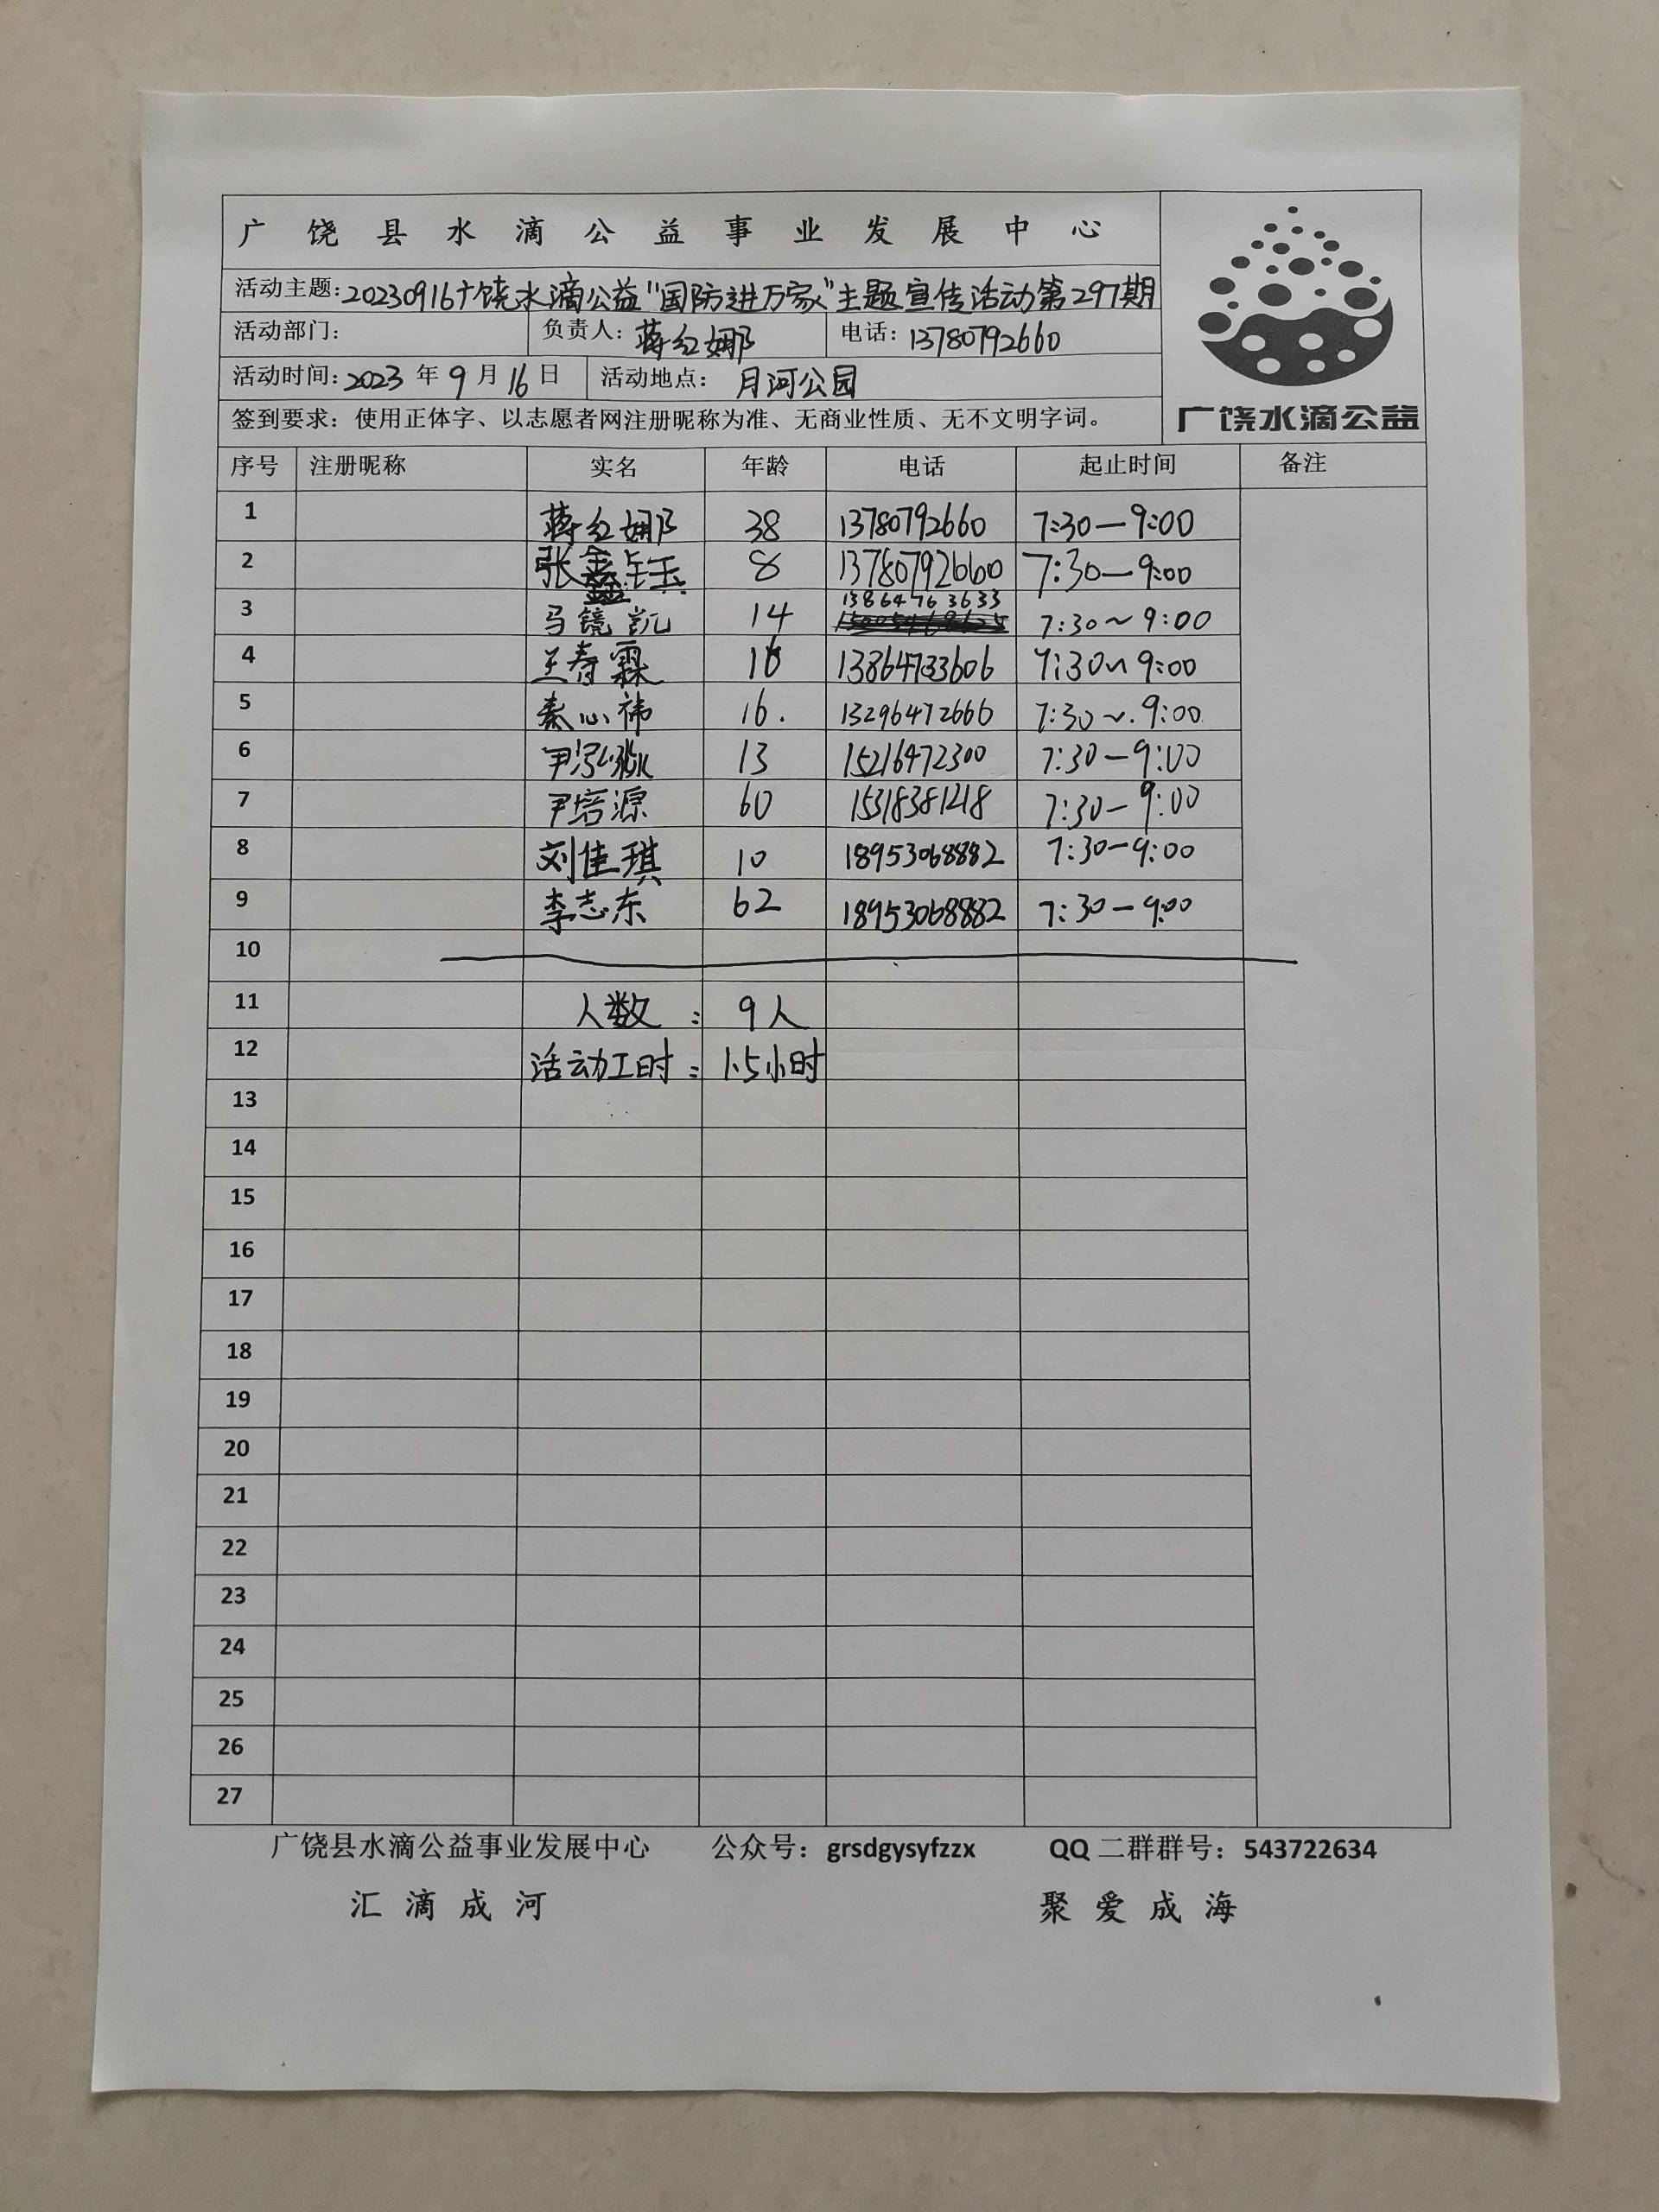 广饶县水滴公益事业发展中心
活动主题:20230916广饶水滴公益"国防进万家"主题宣传活动第297期
活动部门: 负责人:蒋红娜 电话:13780792660
活动时间:2023年9月16日 活动地点:月河公园
签到要求:使用正体字、以志愿者网注册昵称为准、无商业性质、无不文明字词。
广饶水滴公益
序号 注册昵称 实名 年龄 电话 起止时间 备注
1 蒋红娜 38 13780792660 7:30—9:00
2 张鑫钰 8 13780792660 7:30—9:00
3 马镜凯 14 13864763633 7:30~9:00
4 兰春霖 16 13864733606 7:30~9:00
5 秦心祎 16. 13296472666 7:30~.9:00
6 尹泓 13 15216472300 7:30—9:00
7 尹培源 60 15318381218 7:30—9:00
8 刘佳琪 10 18953068882 7:30—9:00
9 李志东 62 18953068882 7:30—9:00
10
11 人数: 9人
12 活动工时: 1.5小时
13
14
15
16
17
18
19
20
21
22
23
24
25
26
27
广饶县水滴公益事业发展中心 公众号:grsdgysyfzzx QQ二群群号:543722634
汇滴成河 聚爱成海